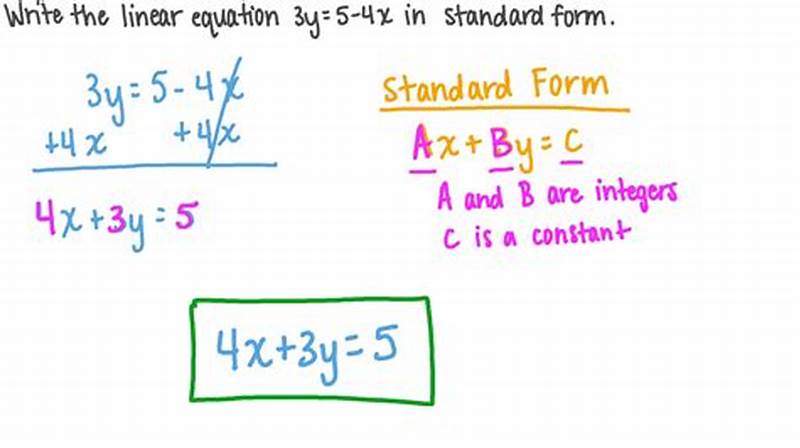 Write the linear equation 3y=5-4x in standard form.
3y=5-4x
+4x +4x
4x+3y=5
Standard Form
Ax+By=C
A and B are integers
C is a constant
4x+3y=5